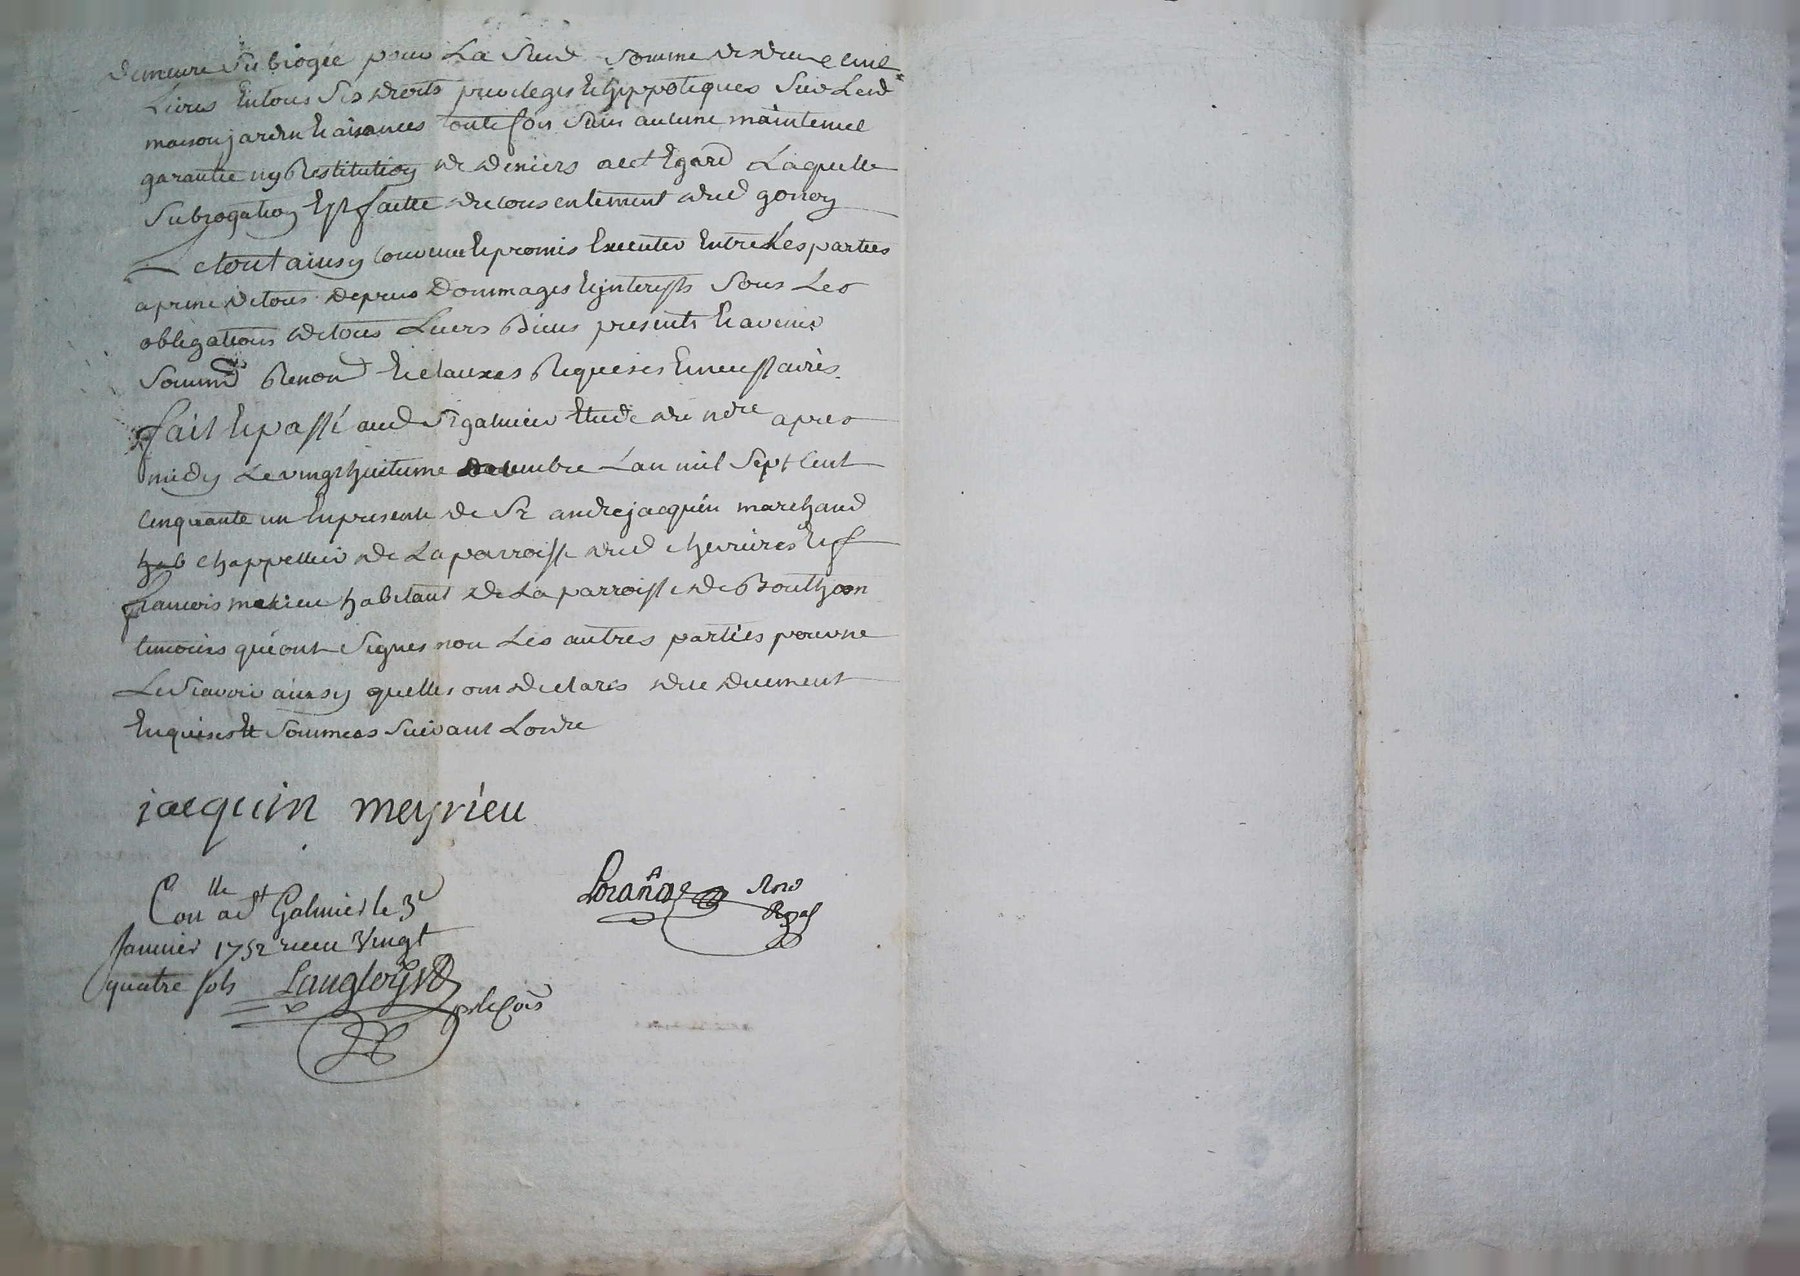 demeure subrogée pour La Susd somme de deux cent
Livres En tous ses droits privileges Et hyppoteques Sur Lesd
maison jardin Et aisances toutefois Sans aucune maintenue
garantie ny Restitution de deniers a cet Egard Laquelle
Subrogation Est faitte du consentement dud gonon
Le tout ainsy convenu Et promis Executer Entre Les parties
a peine de tous depens dommages Et interests Sous Les
obligations de tous Leurs Biens presents Et avenir
Soumn Renond Et clauses Requises Et necessaires
fait Et passé aud St galmier Etude du nore apres
midy Le vingt huitieme decembre Lan mil Sept Cent
Cinquante un En presence de Sr andre jacquin marchand
chappellier de La parroisse dud chevrieres Et
francois meyrieu habitant de La parroisse de Bouthoon
temoins qui ont Signes non Les autres parties pour ne
Le Scavoir ainsy quelles ont declarés de ce duement
Enquises Et Sommees Suivant Lordre
jacquin meyrieu
Conlle a St Galmier le 3e
Janvier 1752 receu Vingt
quatre sols Langlois